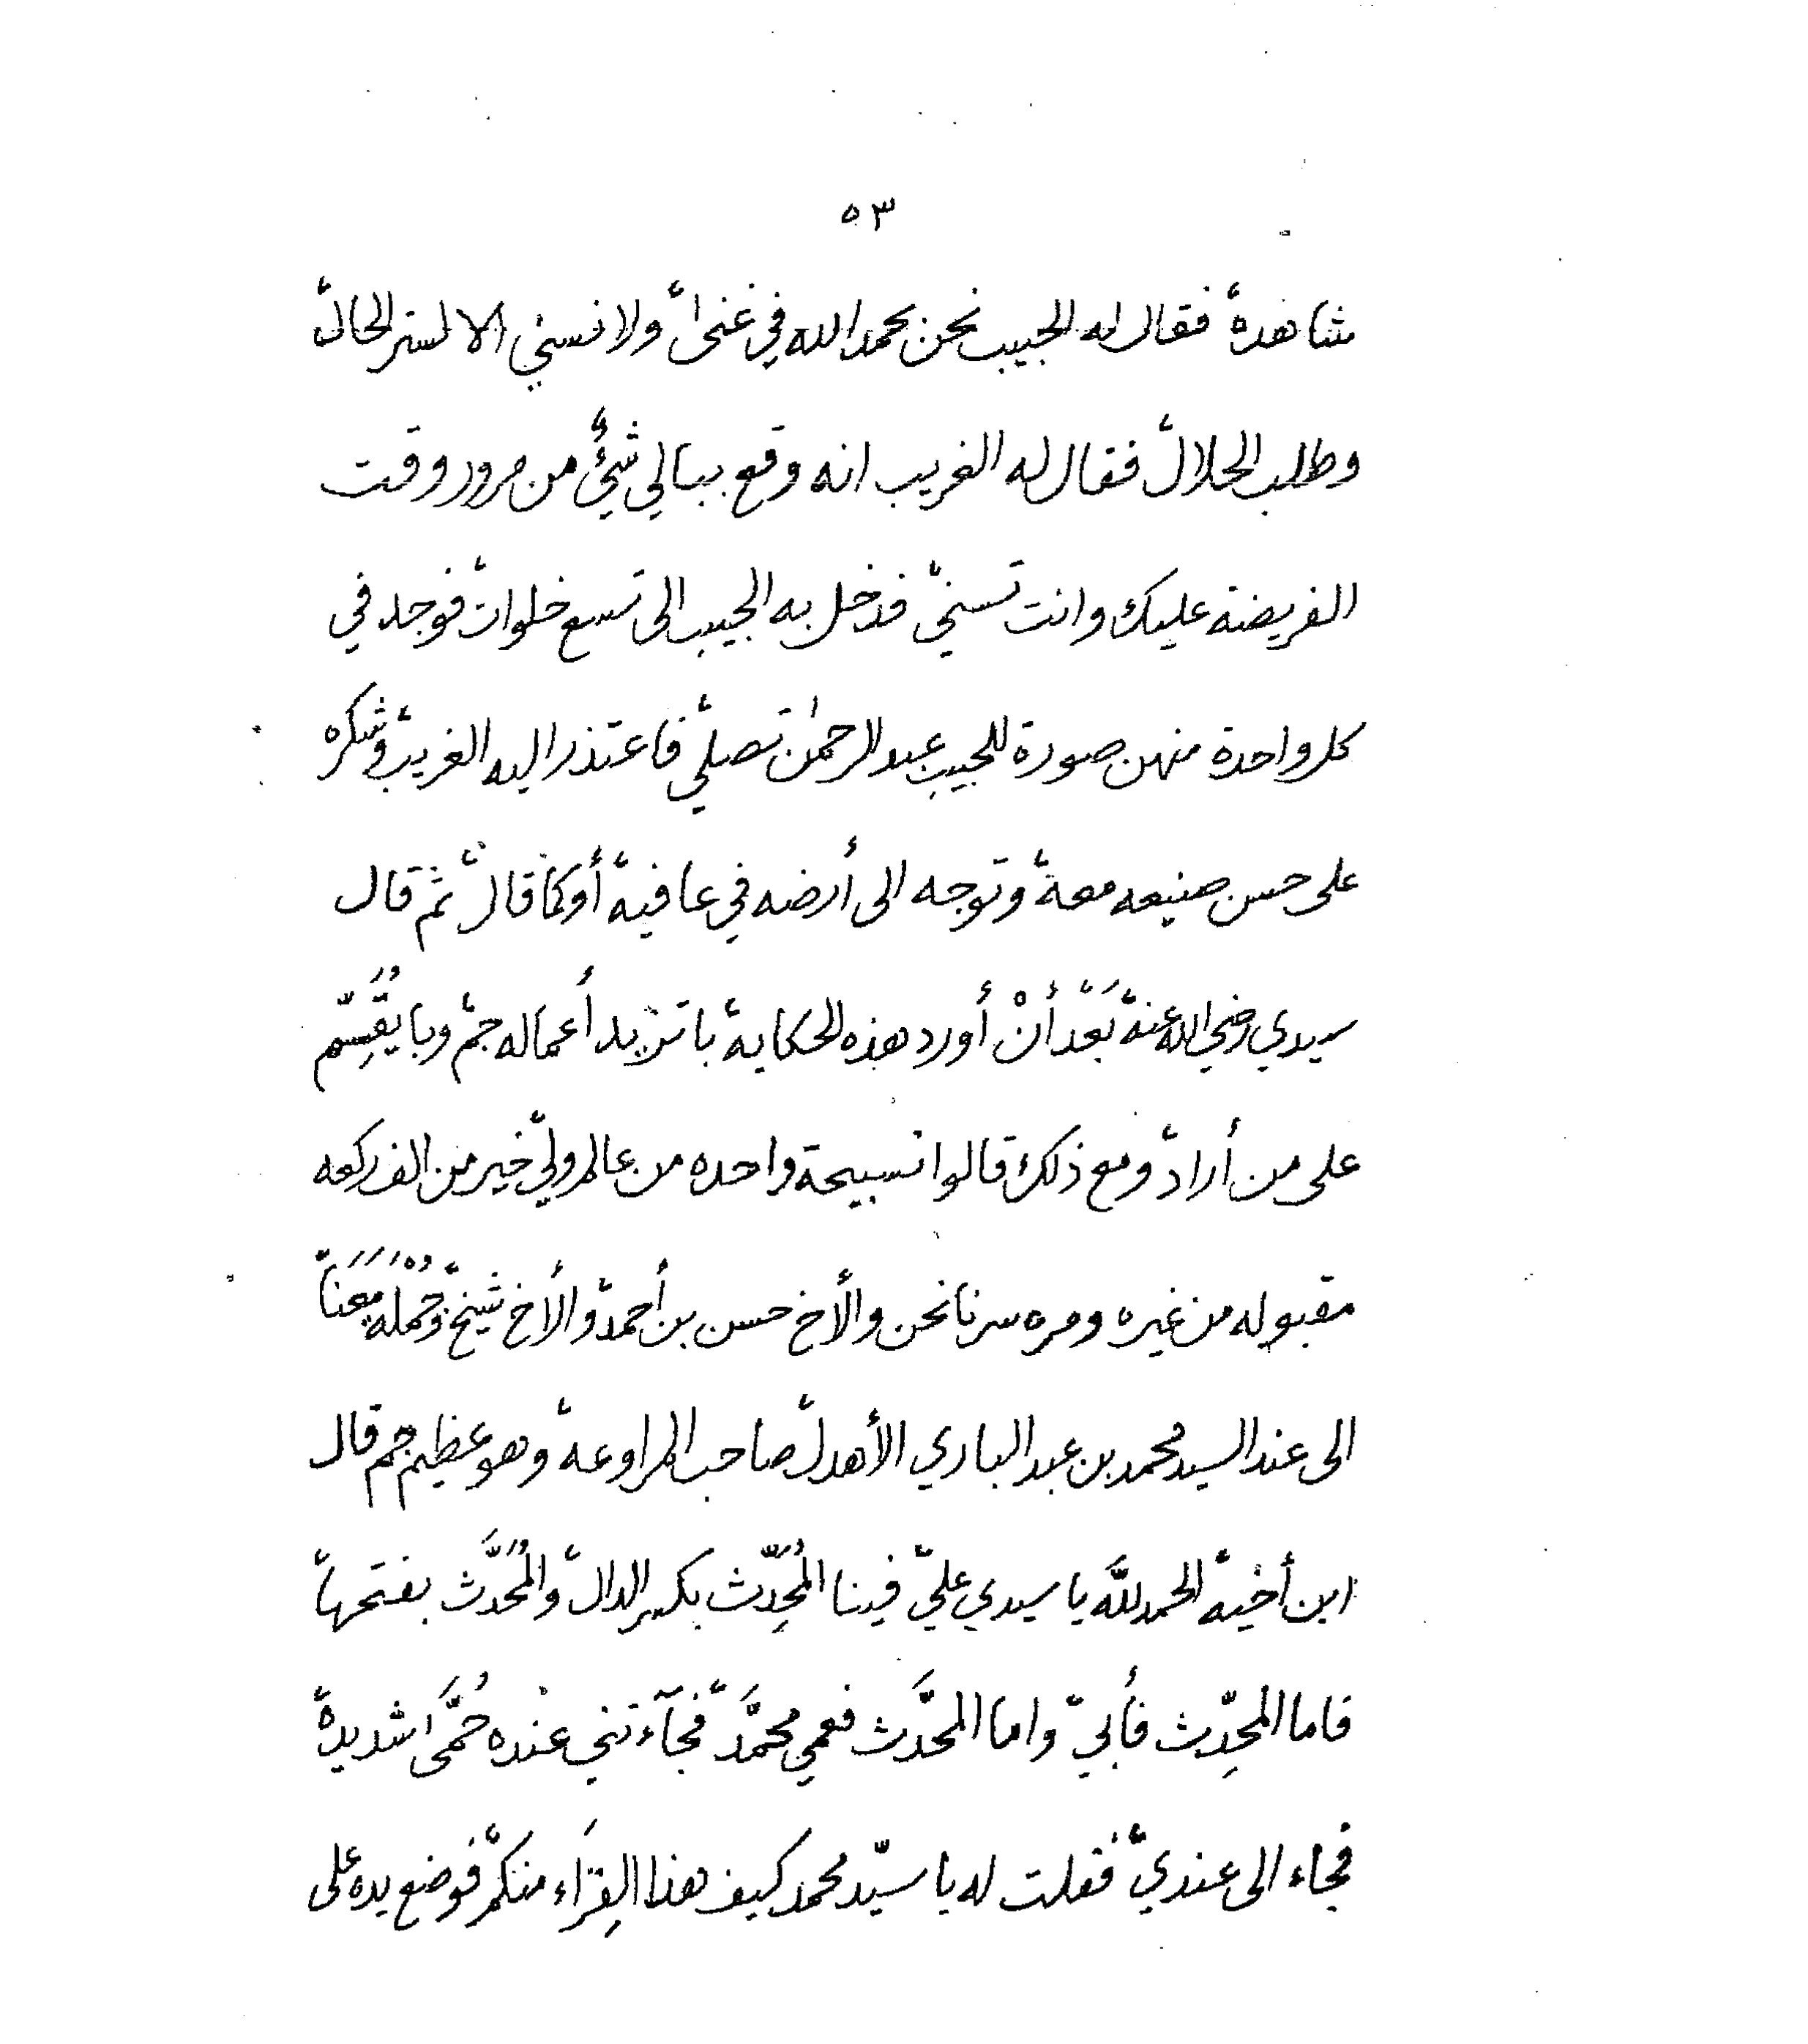 ٥٣
شاهده، فقال له الحبيب نحن بحمد الله في غنىً، ولا نسني الا لستر الحال،
وطلب الحلال، فقال له الغريب انه وقع ببالي شيٌ، من مرور وقت
الفريضة عليك وانت تسني، فدخل به الحبيب الى تسع خلوات، فوجد في
كل واحدة منهن صورة للحبيب عبد الرحمٰن تصلي، فاعتذر اليه الغريب، وشكره
على حسن صنيعه معه، وتوجه الى أرضه في عافيه، أوكما قال، ثم قال
سيدي رضي الله عنه، بَعْدَ أنْ أورد هذه الحكايه، با تزيد أعماله جم، وبا يُقَسِّم
على من أراد، ومع ذلك قالوا تسبيحة واحده من عالم ولي، خير من الف ركعه
مقبوله من غيره ومره سرنا نحن والأخ حسن بن أحمد، والأخ شيخ، وجُمْلَه مَعَنَا،
الى عند السيد محمد بن عبد الباري الأهدل، صاحب المراوعه، وهو عظيم جم قال
ابن أخيه، الحمد للَّه يا سيدي علي، فينا المُحَدِّث بكسر الدال، والمُحَدَّث بفتحها،
فاما المحدِّث فأبي، واما المحدَّث فعمي محمَّد، فجآءتني عنده حُمَّى شديدة،
فجاء الى عندي، فقلت له يا سيّد محمد كيف هذا القِرَاء منكم، فوضع يده على